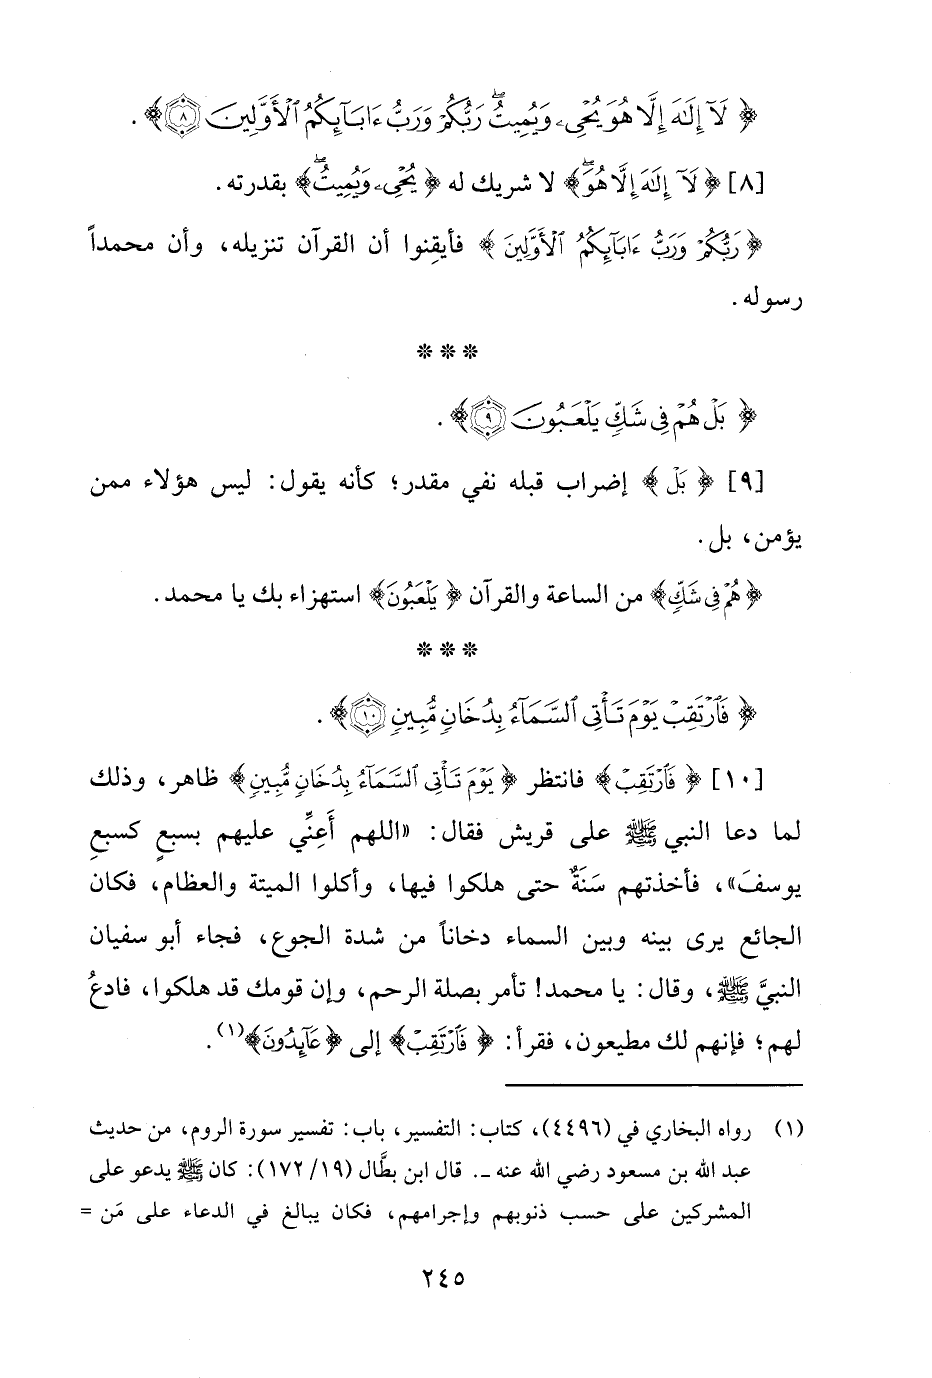 ﴿ لَآ إِلَٰهَ إِلَّا هُوَ يُحْيِۦ وَيُمِيتُ ۖ رَبُّكُمْ وَرَبُّ ءَابَآئِكُمُ ٱلْأَوَّلِينَ ٨ ﴾ .
[٨] ﴿ لَآ إِلَٰهَ إِلَّا هُوَ ۖ ﴾ لا شريك له ﴿ يُحْيِۦ وَيُمِيتُ ۖ ﴾ بقدرته .
﴿ رَبُّكُمْ وَرَبُّ ءَابَآئِكُمُ ٱلْأَوَّلِينَ ﴾ فأيقِنوا أن القرآن تنزيله، وأن محمداً
رسوله .
* * *
﴿ بَلْ هُمْ فِي شَكٍّ يَلْعَبُونَ ٩ ﴾ .
[٩] ﴿ بَلْ ﴾ إضراب قبله نفي مقدر؛ كأنه يقول: ليس هؤلاء ممن
يؤمن، بل .
﴿ هُمْ فِي شَكٍّ ﴾ من الساعة والقرآن ﴿ يَلْعَبُونَ ﴾ استهزاء بك يا محمد .
* * *
﴿ فَٱرْتَقِبْ يَوْمَ تَأْتِي ٱلسَّمَآءُ بِدُخَانٍ مُّبِينٍ ١٠ ﴾ .
[١٠] ﴿ فَٱرْتَقِبْ ﴾ فانتظر ﴿ يَوْمَ تَأْتِي ٱلسَّمَآءُ بِدُخَانٍ مُّبِينٍ ﴾ ظاهر، وذلك
لما دعا النبي ﷺ على قريش فقال: «اللهم أَعِنِّي عليهم بسبعٍ كسبعِ
يوسفَ»، فأخذتهم سَنَةٌ حتى هلكوا فيها، وأكلوا الميتة والعظام، فكان
الجائع يرى بينه وبين السماء دخاناً من شدة الجوع، فجاء أبو سفيان
النبيَّ ﷺ، وقال: يا محمد! تأمر بصلة الرحم، وإن قومك قد هلكوا، فادعُ
لهم؛ فإنهم لك مطيعون، فقرأ: ﴿ فَٱرْتَقِبْ ﴾ إلى ﴿ عَآئِدُونَ ﴾(١) .
(١) رواه البخاري في (٤٤٩٦)، كتاب: التفسير، باب: تفسير سورة الروم، من حديث
عبد الله بن مسعود رضي الله عنه ـ. قال ابن بطَّال (١٩/ ١٧٢): كان ﷺ يدعو على
المشركين على حسب ذنوبهم وإجرامهم، فكان يبالغ في الدعاء على مَن =
٢٤٥